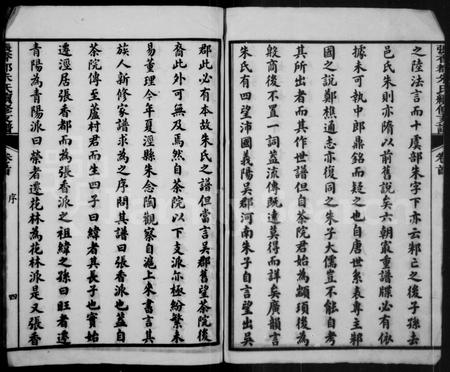 張香都朱氏續修支譜
卷首
之陸法言而十虞部朱字下亦云邾亡之後子孫去
邑氏朱則亦隋以前舊說矣六朝最重譜牒必有依
據未可執中郎鼎銘而疑之也自唐世系表專主邾
國之說鄭樵通志亦復同之朱子大儒豈不能自考
其所出者而其作世譜但自茶院君始為顓頊後為
般商後不置一詞蓋流傳既遠莫得而詳矣廣韻言
朱氏有四望沛國義陽吳郡河南朱子自言望出吳
郡此必有本故朱氏之譜但當言吳郡舊望茶院後
裔此外可無及焉然自茶院以下支派亦極紛繁未
易董理今年夏涇縣朱念陶觀察自滬上來書言其
族人新修家譜求為之序問其譜曰張香派也蓋自
茶院傳至蘆村君而生四子曰緯者其長子也實始
遷涇居張香都而為張香派之祖緯之孫曰旺者遷
青陽為青陽派曰棨者遷花林為花林派是又張香
張香都朱氏續修支譜
卷首
序
四